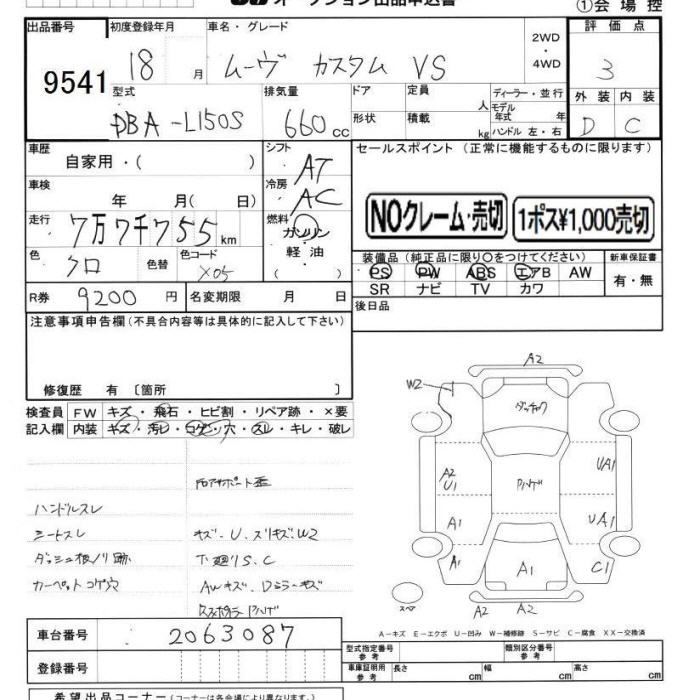 オークション出品申込書
①会場控
出品番号 初度登録年月 車名・グレード 2WD ・ 4WD 評価点
9541 18 月 ムーヴ カスタム VS 3
型式 排気量 ドア 定員 人 ディーラー・並行 モデル年式 年 外装 内装
DBA-L150S 660cc 形状 積載 kg ハンドル 左・右 D C
車歴 シフト セールスポイント (正常に機能するものに限ります)
自家用・( ) AT
車検 冷房
年 月( 日) AC
NOクレーム・売切 1ポス¥1,000売切
走行 燃料
7万7千755km ガソリン
色 色替 色コード 軽油
クロ X05 ( )
装備品 (純正品に限り○をつけてください) 新車保証書
PS PW ABS エアB AW 有・無
SR ナビ TV カワ
R券 9200 円 名変期限 月 日
後日品
注意事項申告欄(不具合内容等は具体的に記入して下さい)
修復歴 有〔箇所 〕
検査員 FW キズ・飛石・ヒビ割・リペア跡・×要
記入欄 内装 キズ・汚レ・コゲ・穴・スレ・キレ・破レ
ハンドルスレ
シートスレ キズ・U.スリキズ.W2
ダッシュ板ノリ跡 下廻りS.C
カーペットコゲ穴 AWキズ・Dミラーキズ
A2
W2
A2
U1
UA1
A1
UA1
A1
A1
C1
スペア
A2
A2
A-キズ E-エクボ U-凹み W-補修跡 S-サビ C-腐食 XX-交換済
車台番号 2063087
型式指定番号 参考 類別区分番号 参考
登録番号 車庫証明用 参考 長さ cm 幅 cm 高さ cm
希望出品コーナー(コーナーは各会場により異なります。)